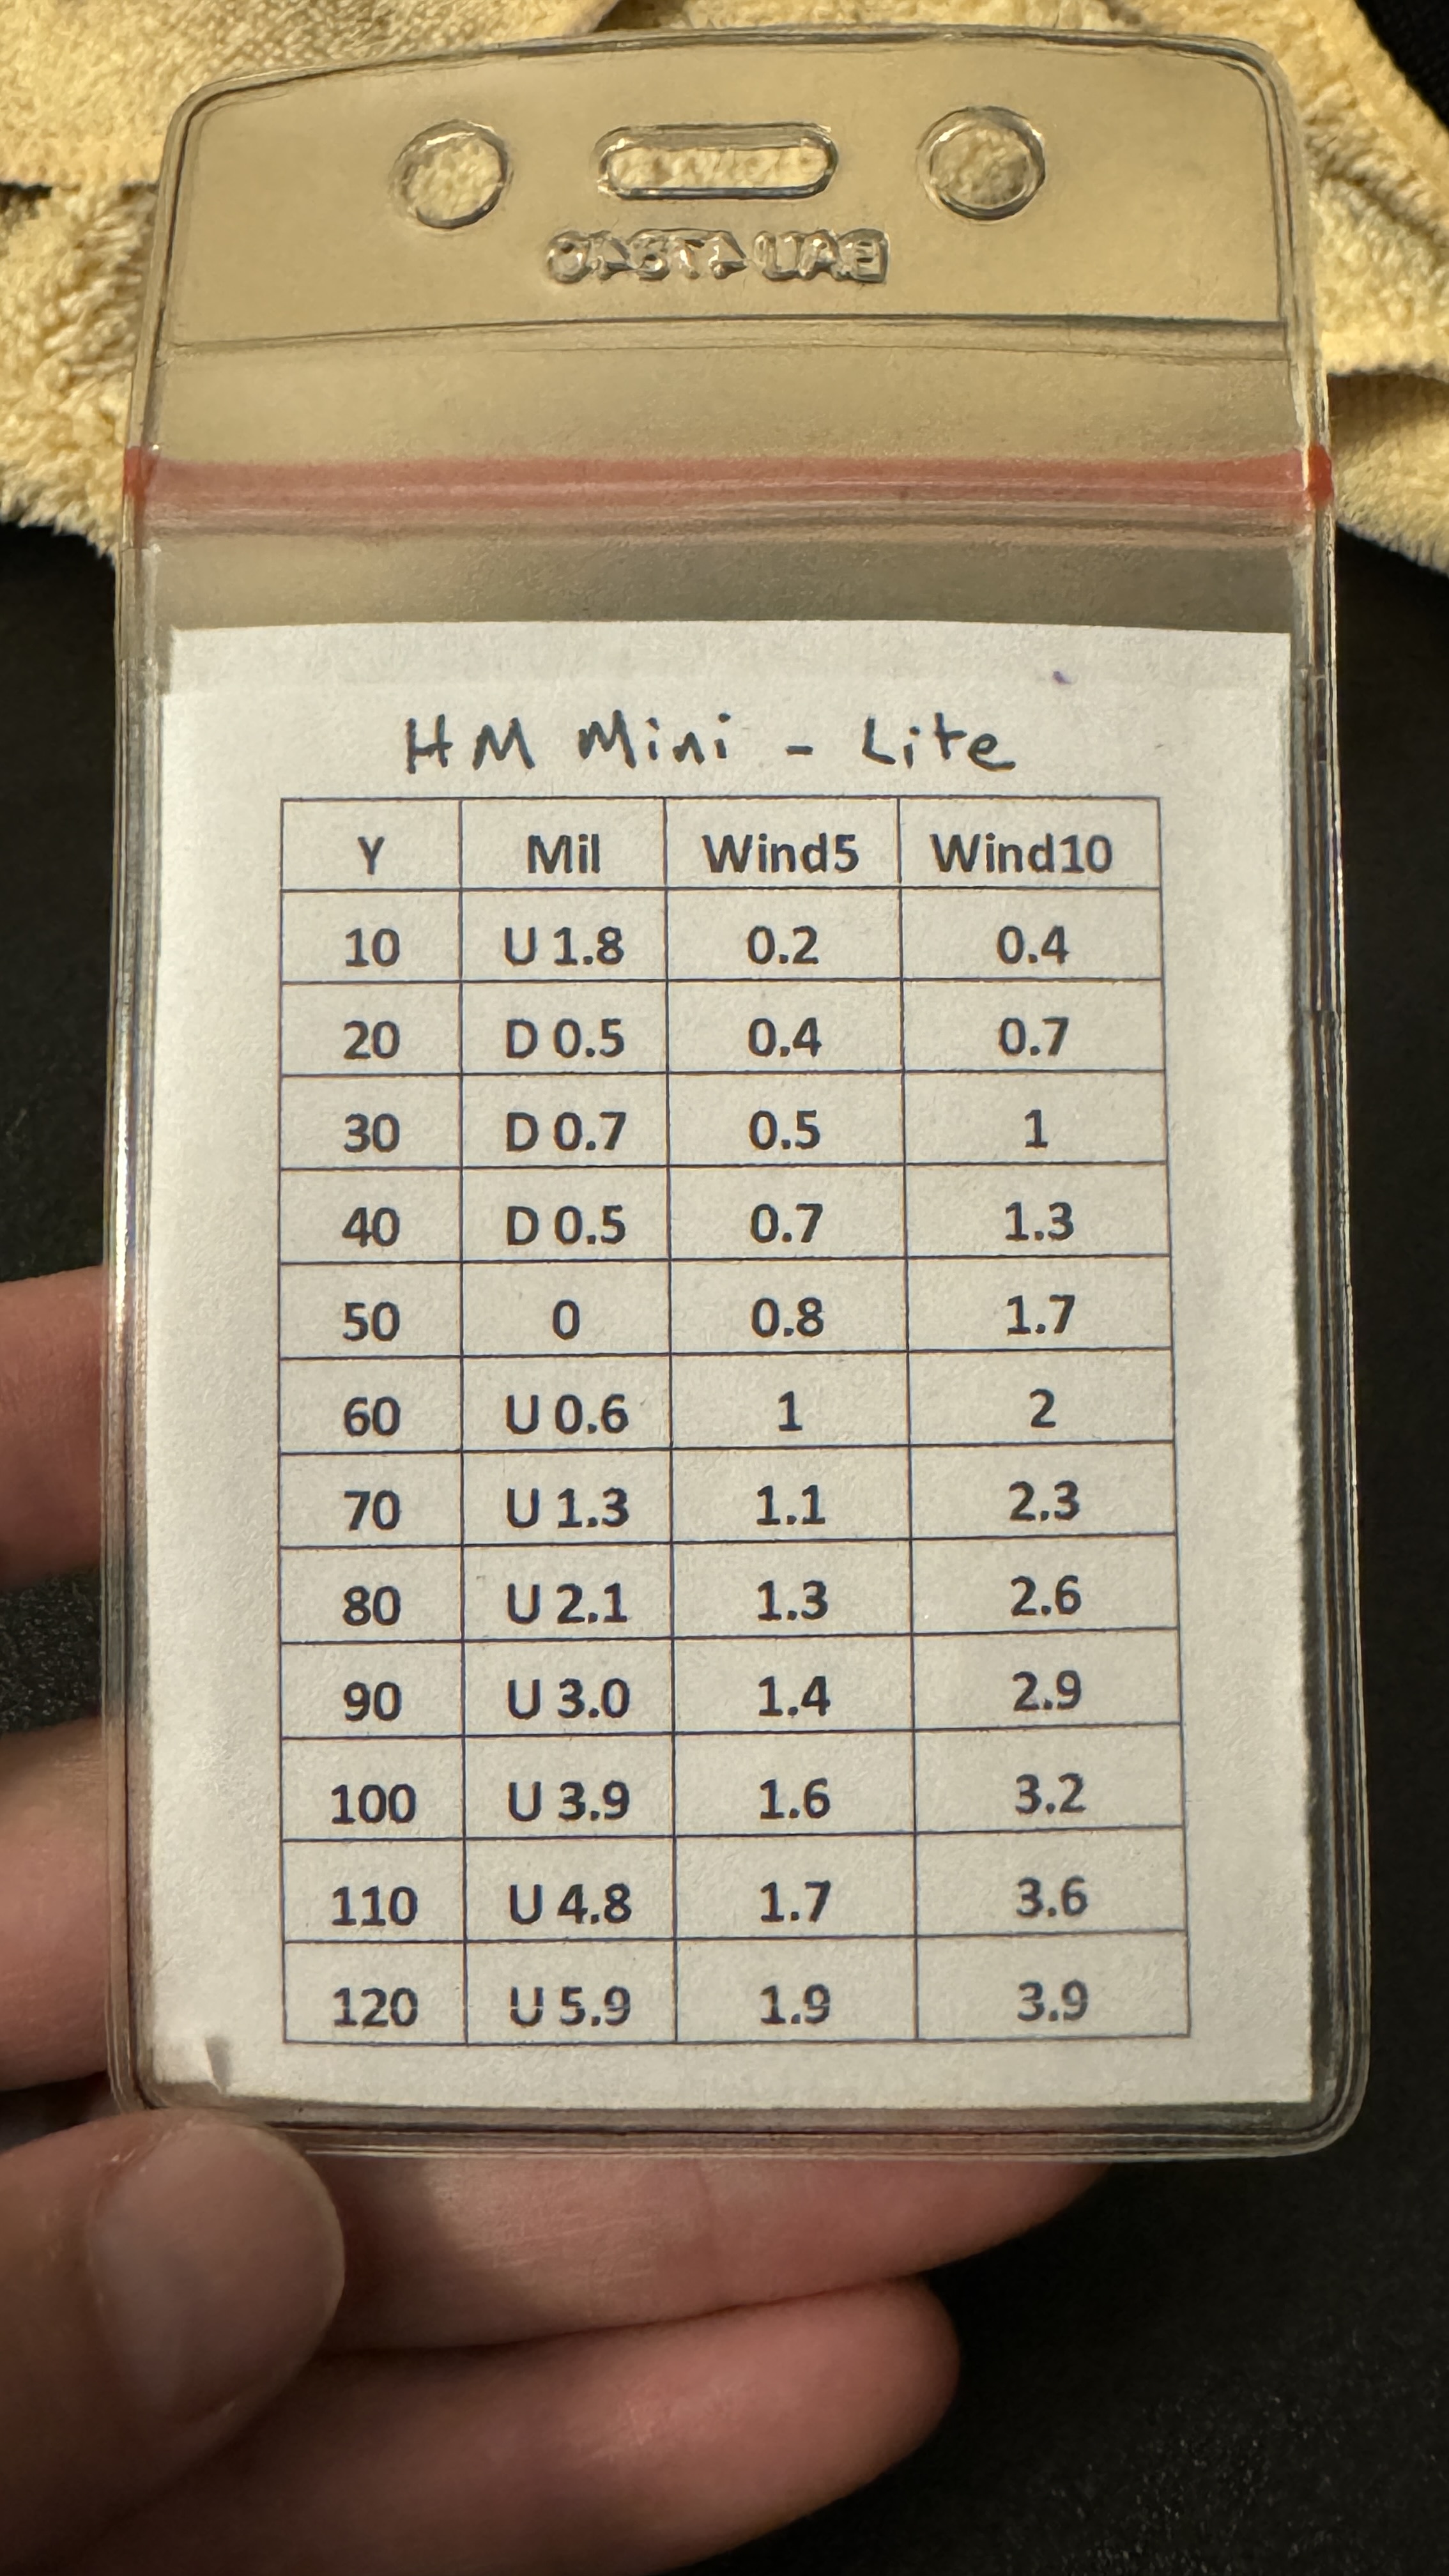 HM Mini - Lite
Y Mil Wind5 Wind10
10 U 1.8 0.2 0.4
20 D 0.5 0.4 0.7
30 D 0.7 0.5 1
40 D 0.5 0.7 1.3
50 0 0.8 1.7
60 U 0.6 1 2
70 U 1.3 1.1 2.3
80 U 2.1 1.3 2.6
90 U 3.0 1.4 2.9
100 U 3.9 1.6 3.2
110 U 4.8 1.7 3.6
120 U 5.9 1.9 3.9